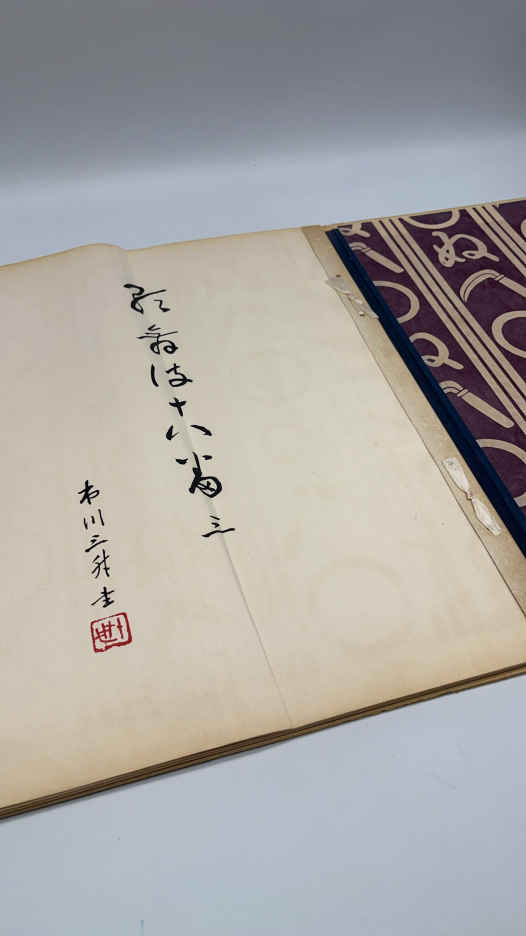 歌舞伎十八番 三
市川三升書
ぬ
ぬ